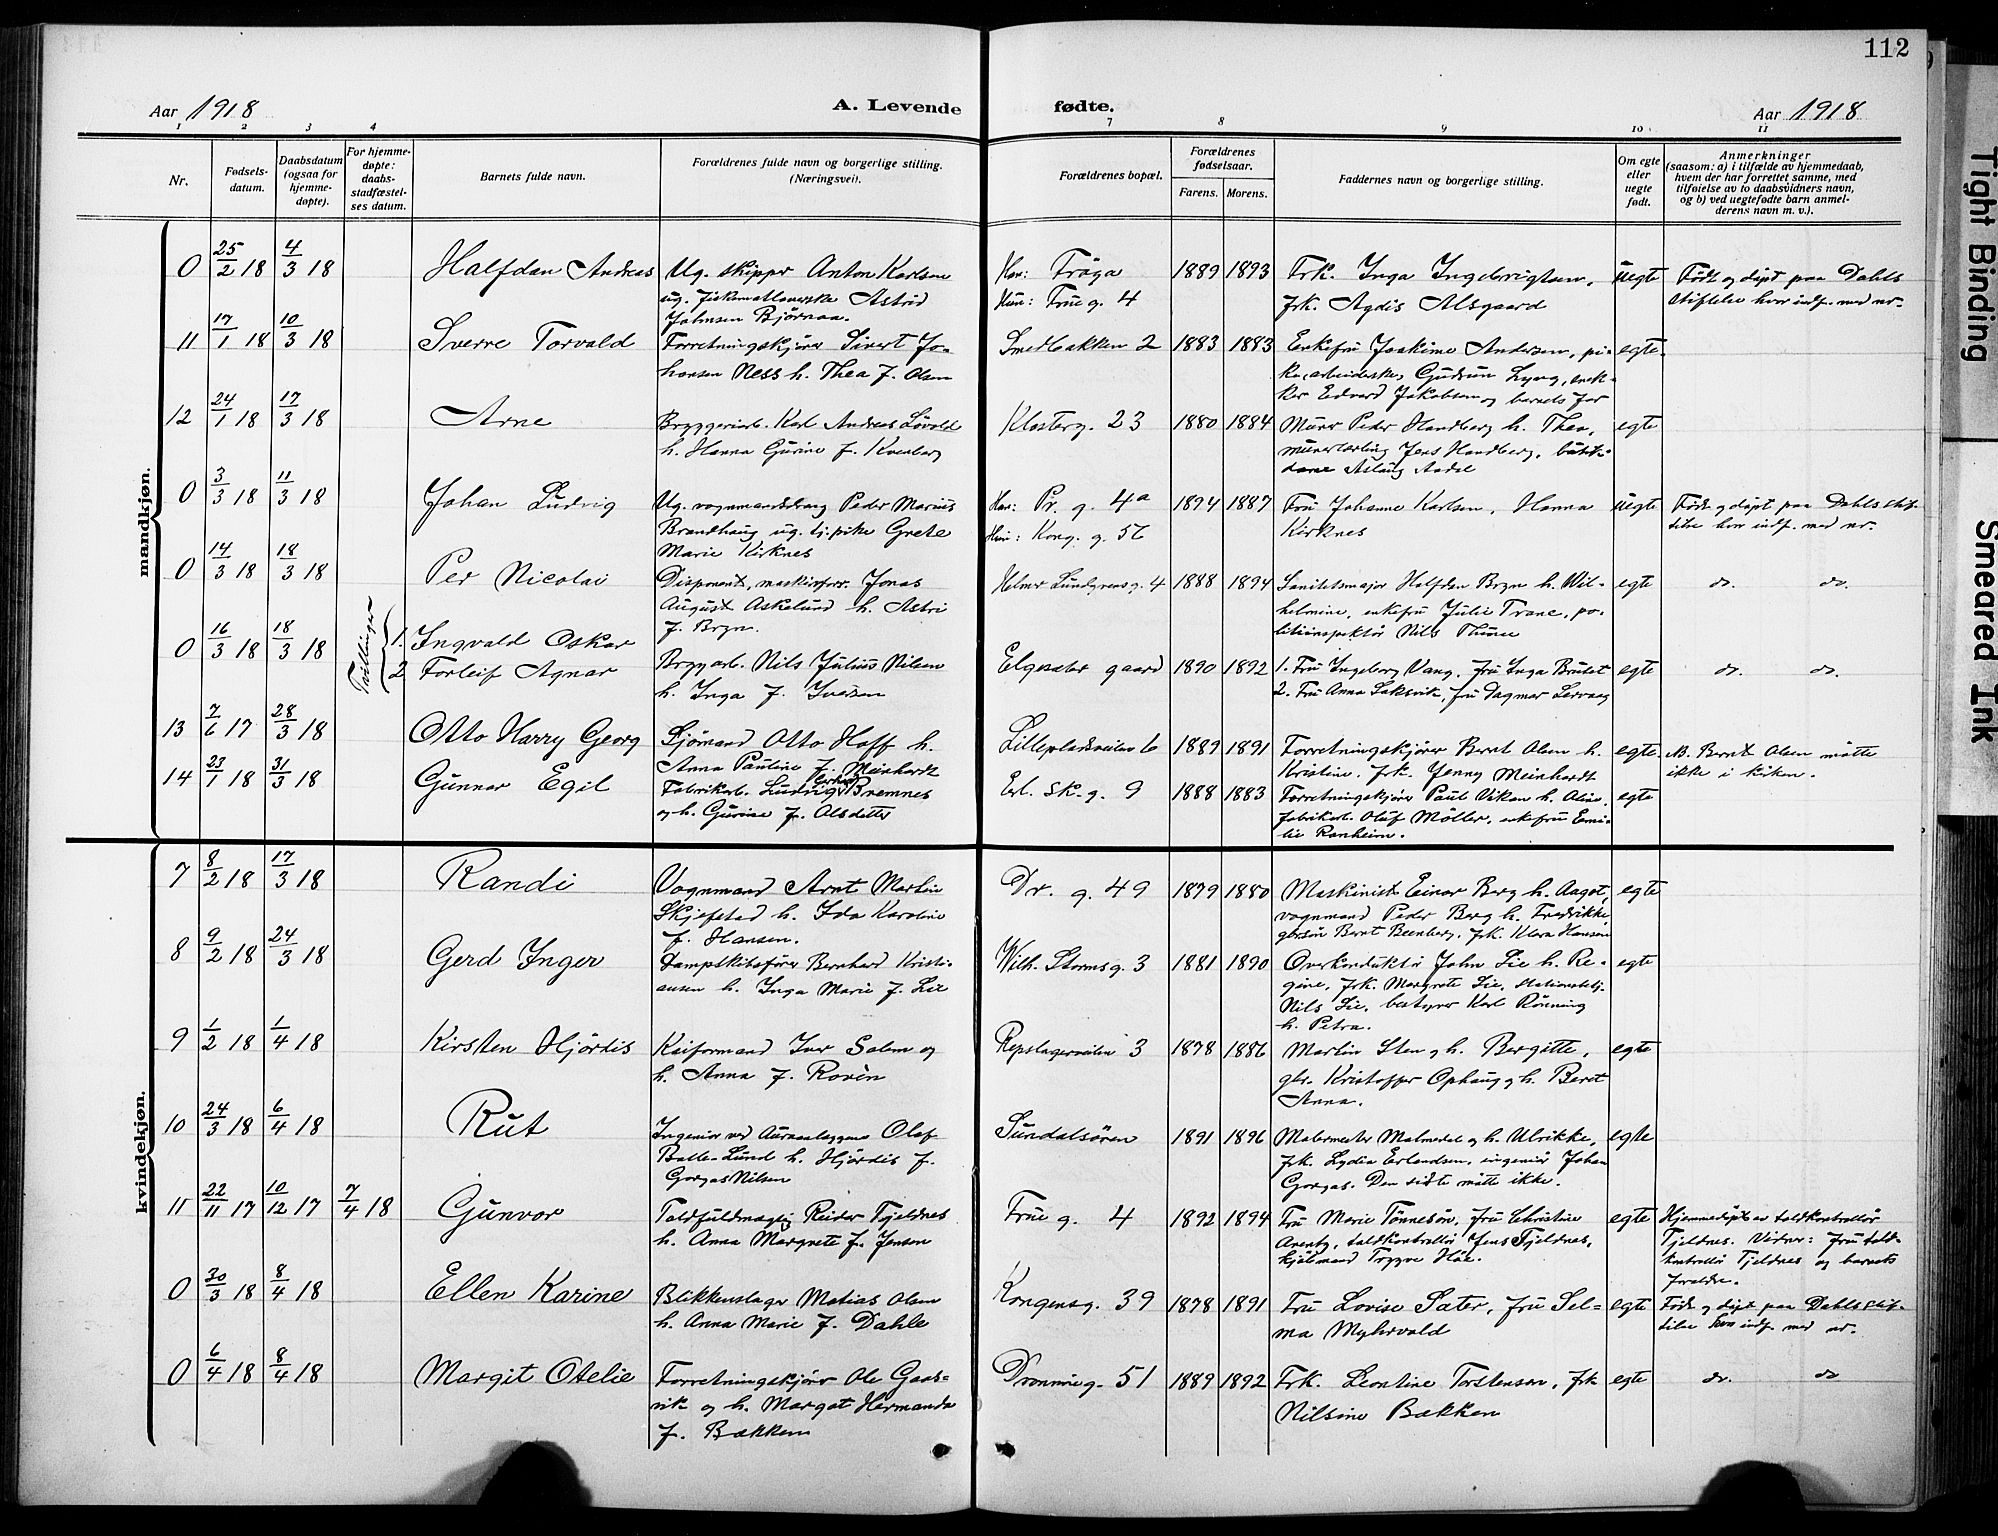 112
Aar 1918
A. Levende
fødte.
Aar 1918
1 2 3 4
7 8 9 10 11
Nr.
Fødsels-
datum.
Daabsdatum
(ogsaa for
hjemme-
døpte).
For hjemme-
døpte:
daabs-
stadfæstel-
ses datum.
Barnets fulde navn.
Forældrenes fulde navn og borgerlige stilling.
(Næringsvei).
Forældrenes bopæl.
Forældrenes
fødselsaar.
Farens. Morens.
Faddernes navn og borgerlige stilling.
Om egte
eller
uegte
født.
Anmerkninger
(saasom: a) i tilfælde av hjemmedaab,
hvem der har forrettet samme, med
tilføielse av to daabsvidners navn,
og b) ved uegtefødte barn anmel-
derens navn m. v.).
mandkjøn.
0 25/2 18 4/3 18 Halfdan Andreas
Ug. skipper Anton Karlsen
ug. Astrid
Johnsen Bjørnaa.
Han: Frøya
Hun: Frueg. 4
1889 1893
Frk. Inga Ingebrigtsen,
frk. Agdis Alsgaard
uegte
Født og døpt paa Dahls
stiftelse hvor indf. med nr.
11 17/1 18 10/3 18 Sverre Torvald
Forretningskjører Sivert Jo-
hansen Ness h. Thea f. Olsen
Smedbakken 2
1883 1883
Enkefru Joakime Andersen, pi-
ke, arbeiderske, Gudrun Lyng, snek-
ker Edvard Jakobsen og barnets far
egte
12 24/1 18 17/3 18 Arne
Bryggeriarb. Karl Andreas Løvold
h. Hanna Gurine f. Kvenberg
Klosterg. 23
1880 1884
Murer Peder Handberg h. Thea,
murerlærling Jens Handberg,
Aslaug Aadal
egte
0 3/3 18 11/3 18 Johan Ludvig
Ug. vognmandsdreng Peder Marius
Brandhaug ug. tj.pike Grete
Marie Kirknes
Han: Pr. g. 4a
Hun: Kong. g. 56
1894 1887
Fru Johanne Karlsen, Hanna
Kirknes
uegte
Født og døpt paa Dahls stif-
telse hvor indf. med nr.
0 14/3 18 18/3 18 Per Nicolai
Disponent, maskinforr. Jonas
August Askelund h. Astri
f. Bryn.
Helmer Lundgreensg. 4
1888 1894
Sanitetsmajor Halfdan Bryn h. Wil-
helmine, enkefru Julie Trane, po-
litiinspektør Nils Thune
egte
do. do.
0 16/3 18 18/3 18 Tvillinger
1. Ingvald Oskar
2 Torleif Agnar
Bryggarb. Nils Julius Nilsen
h. Inga f. Iversen
Elgeseter gaard
1890 1892
1. Fru Ingeborg Vang, fru Inga Brubet
2. Fru Anna Saksvik, fru Dagmar Lervaag
egte
do. do.
13 7/6 17 28/3 18 Otto Harry Georg
Sjømand Otto Hoff h.
Anna Pauline f. Meinhardt
Lillepladsveien 6
1889 1891
Forretningskjører Bernt Olsen h.
Kristine, frk. Jenny Meinhardt
egte
NB. Bernt Olsen møtte
ikke i kirken.
14 23/1 18 31/3 18 Gunnar Egil
Fabrikarb. Ludvig Bremnes
og h. Gurine f. Alsdatter
Erl. Sk. g. 9
1888 1883
Forretningskjører Paul Viken h. Oline,
fabrikarb. Oluf Möller, enkefru Emi-
lie Ranheim.
egte
kvindekjøn.
7 8/2 18 17/3 18 Randi
Vognmand Arnt Martin
Skjefstad h. Ida Karoline
f. Hansen.
Dr. g. 49
1879 1880
Maskinist Einar Berg h. Aagot,
vognmand Peder Berg h. Fredrikke,
Bernt Beenberg, frk. Klara Hansen
egte
8 9/2 18 24/3 18 Gerd Inger
Dampskibsfører Bernhard Kristi-
ansen h. Inga Marie f. Lie
Wilh. Stormsg. 3
1881 1890
Overkonduktør John Lie h. Re-
gine, frk. Margrete Lie, stationsbtj.
Nils Lie, bestyrer Karl Rønning
h. Petra.
egte
9 1/2 18 1/4 18 Kirsten Hjördis
Kaiformand Iver Solem og
h. Anna f. Roven
Repslagerveien 3
1878 1886
Martin Sten og h. Bergitte,
gbr. Kristoffer Ophaug og h. Beret
Anna.
egte
10 24/3 18 6/4 18 Rut
Ingeniør ved Auraanlæggene Olaf
Balle-Lund h. Hjördis f.
Gorgas Nilsen
Sundalsören
1891 1896
Malermester Malmedal og h. Ulrikke,
frk. Lydia Erlandsen, ingeniør Johan
Gorgas. Den sidste møtte ikke.
egte
11 22/11 17 10/12 17 7/4 18 Gunvor
Toldfuldmægtig Reidar Tjeldnes
h. Anna Margrete f. Jensen
Frue g. 4
1892 1894
Fru Marie Tönnesön, fru Christine
Arentz, toldkontrollør Jens Tjeldnes,
kjøbmand Trygve Høe.
egte
Hjemmedøpt av toldkontrollør
Tjeldnes. Vidner: fru told-
kontrollør Tjeldnes og barnets
forældre.
0 30/3 18 8/4 18 Ellen Karine
Blikkenslager Matias Olsen
h. Anna Marie f. Dahle
Kongensg. 39
1878 1891
Fru Lovise Sæter, fru Sel-
ma Myhrvold
egte
Født og døpt paa Dahls stif-
telse hvor indf. med nr.
0 6/4 18 8/4 18 Margit Otelie
Forretningskjører Ole Gaas-
vik og h. Margot Hermanda
f. Bækken
Dronningg. 51
1889 1892
Frk. Leontine Torstensen, frk
Nilsine Bækken
egte
do. do
Tight Binding
Smeared Ink